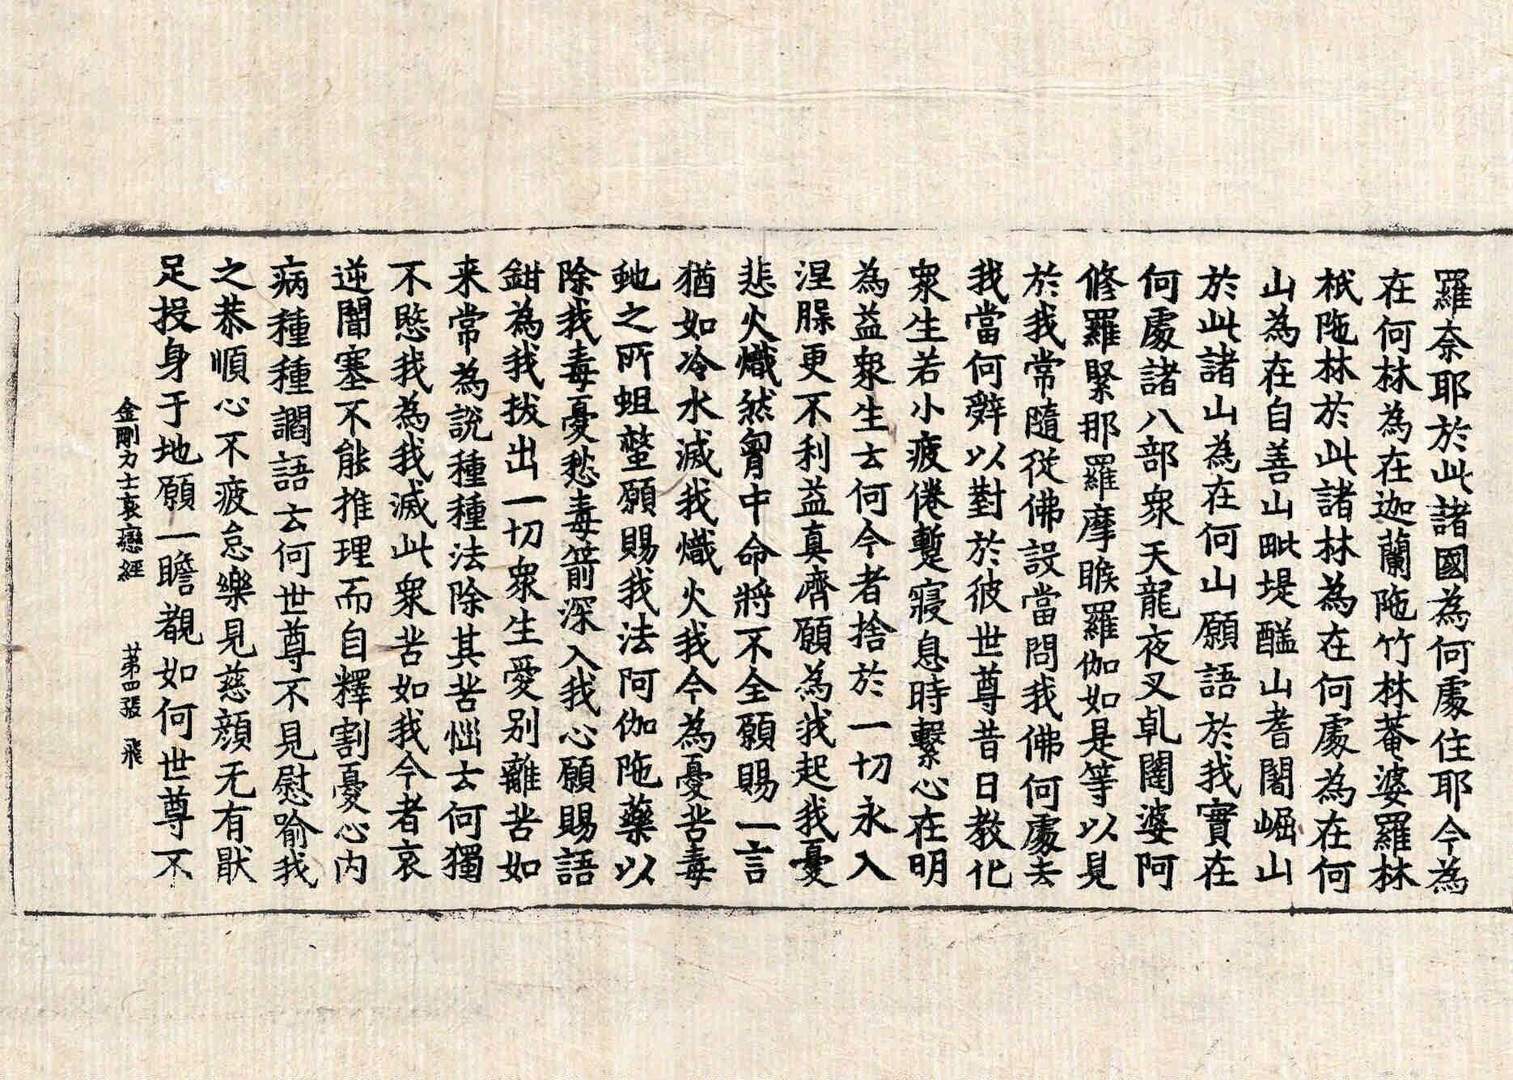 羅奈耶於此諸國為何處住耶今為
在何林為在迦蘭陁竹林菴婆羅林
祇陁林於此諸林為在何處為在何
山為在自善山毗堤醯山耆闍崛山
於此諸山為在何山願語於我實在
何處諸八部衆天龍夜叉乹闥婆阿
修羅緊那羅摩睺羅伽如是等以見
於我常隨從佛設當問我佛何處去
我當何辤以對於彼世尊昔日教化
衆生若小疲倦蹔寢息時繫心在明
為益衆生去何今者捨於一切永入
涅髁更不利益真濟願為我起我憂
悲火熾然胷中命將不全願賜一言
猶如冷水滅我熾火我今為憂苦毒
虵之所蛆螫願賜我法阿伽陁藥以
除我毒憂愁毒箭深入我心願賜語
鉗為我拔出一切衆生愛別離苦如
来常為說種種法除其苦惱去何獨
不愍我為我滅此衆苦如我今者哀
逆闇塞不能推理而自釋割憂心內
病種種讇語去何世尊不見慰喻我
之恭順心不疲怠樂見慈顔无有猒
足投身于地願一瞻覩如何世尊不
金剛力士哀戀經 苐四張 飛